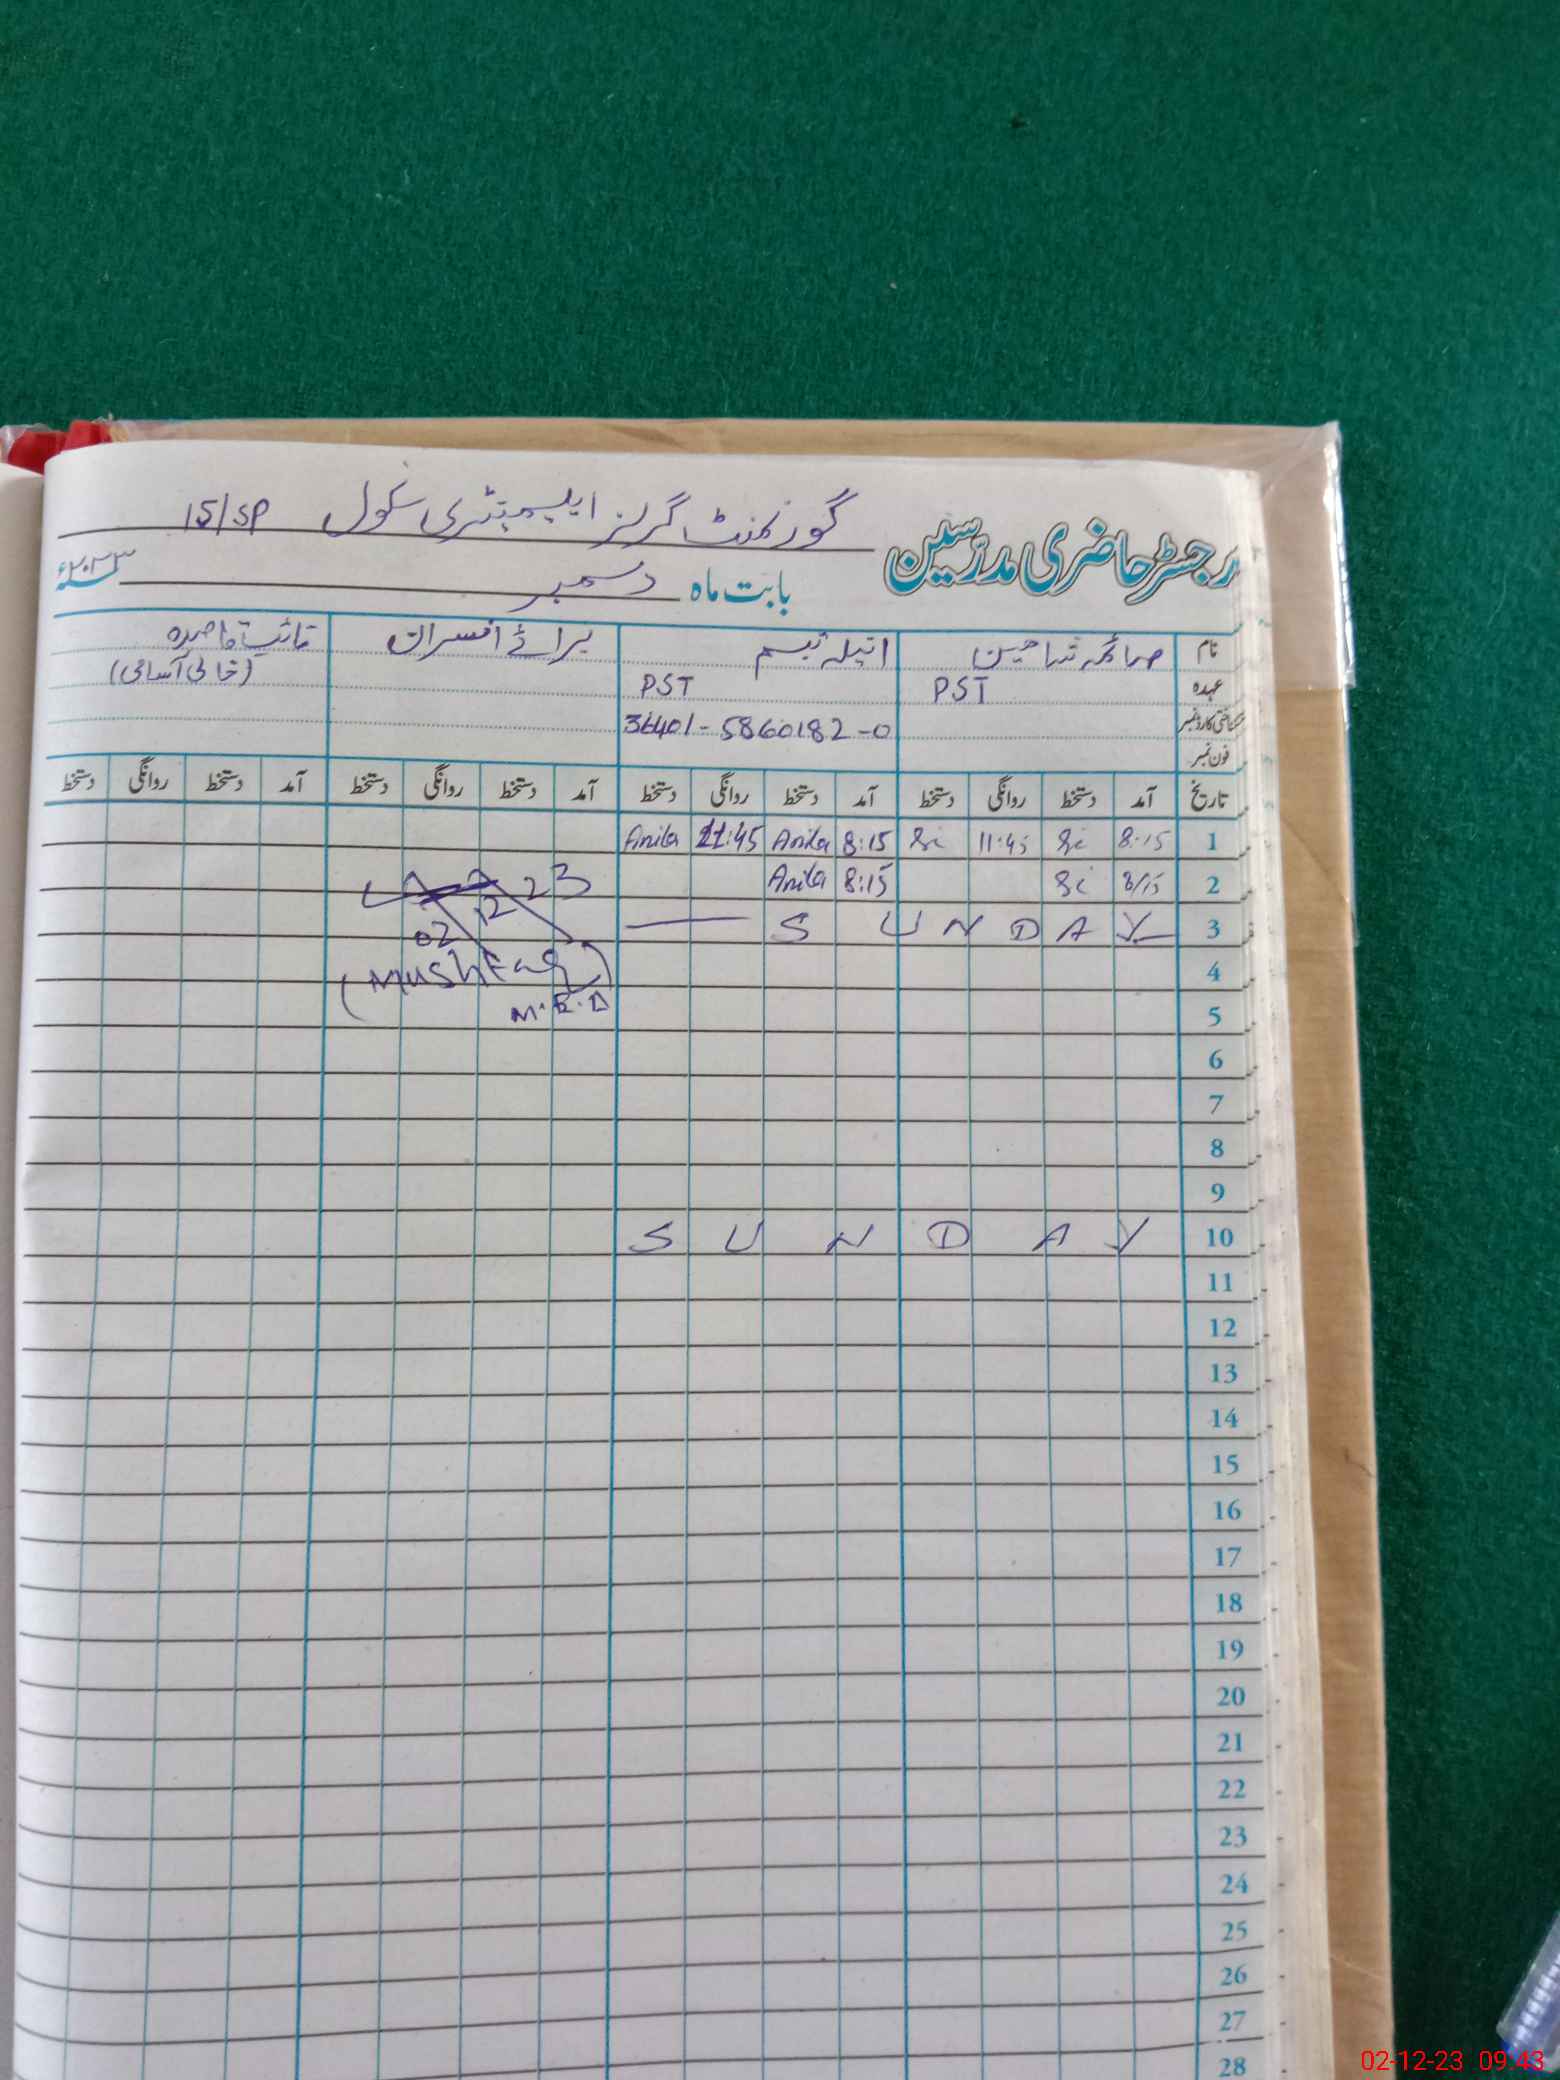 رجسٹر حاضری مدرسین گورنمنٹ گرلز ایلیمنٹری سکول 15/SP
بابت ماہ دسمبر ۲۰۲۳ء
نام صائمہ شاہین انیلہ تبسم برائے افسران نائب قاصدہ
عہدہ PST PST (خالی آسامی)
شناختی کارڈ نمبر 36401-5860182-0
فون نمبر
تاریخ آمد دستخط روانگی دستخط آمد دستخط روانگی دستخط آمد دستخط روانگی دستخط آمد دستخط روانگی دستخط
1 8:15 11:45 8:15 Anila 11:45 Anila
2 8/15 8:15 Anila
3 SUNDAY
02 12 23
4 (Mushtaq)
5 M.E.A
6
7
8
9
10 SUNDAY
11
12
13
14
15
16
17
18
19
20
21
22
23
24
25
26
27
28
02-12-23 09:43